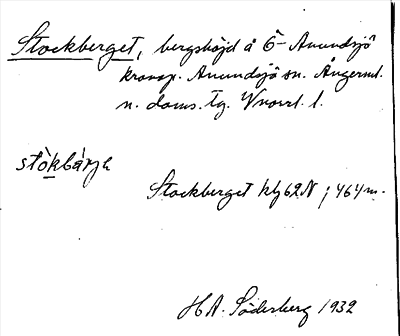 Stockberget, bergshöjd å Ö-Anundsjö
kronop. Anundsjö sn. Ångerml.
n. doms. tg. Vnorrl. l.
stòkbárjh
Stockberget kbl 62N ; 464 m.
H A. Söderberg 1932